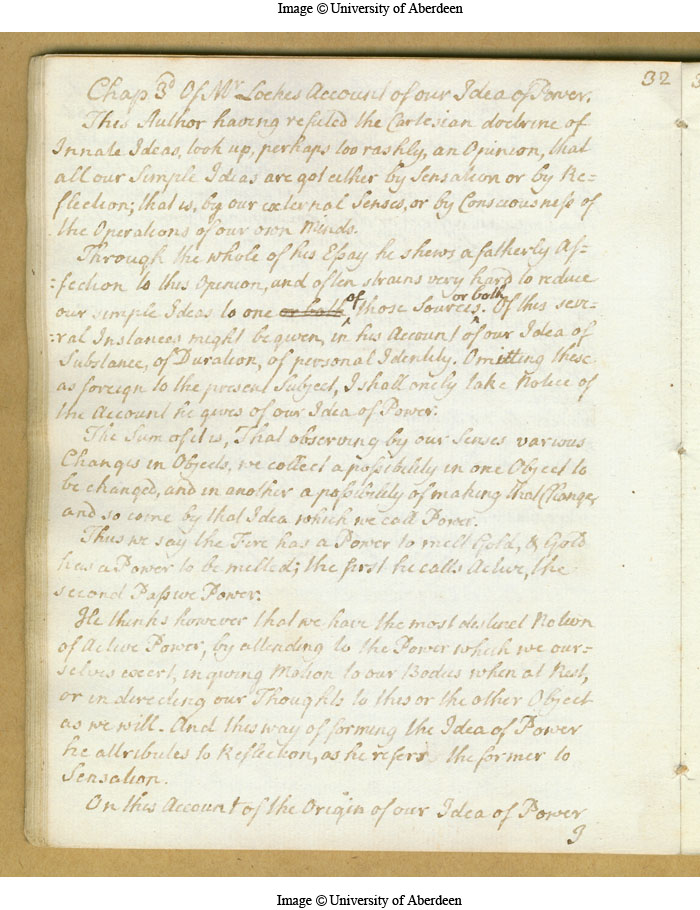 Image © University of Aberdeen
32
Chap 3d Of Mr Lockes Account of our Idea of Power.
This Author having refuted the Cartesian doctrine of
Innate Ideas, took up, perhaps too rashly, an Opinion, that
all our Simple Ideas are got either by Sensation or by Re=
flection; that is, by our external Senses, or by Consciousness of
the Operations of our own Minds.
Through the whole of his Essay he shews a fatherly Af=
=fection to this Opinion, and often strains very hard to reduce
our simple Ideas to one or both of those Sources or both. Of this seve=
=ral Instances might be given, in his Account of our Idea of
Substance, of Duration, of personal Identity. Omitting these
as foreign to the present Subject, I shall onely take Notice of
the Account he gives of our Idea of Power.
The Sum of it is, That observing by our Senses various
Changes in Objects, we collect a possibility in one Object to
be changed, and in another a possibility of making that Change,
and so come by that Idea which we call Power.
Thus we say the Fire has a Power to melt Gold, & Gold
has a Power to be melted; the first he calls Active, the
second Passive Power.
He thinks however that we have the most distinct Notion
of Active Power, by attending to the Power which we our=
selves exert, in giving Motion to our Bodies when at Rest,
or in directing our Thoughts to this or the other Object
as we will. And this way of forming the Idea of Power
he attributes to Reflection, as he refers the former to
Sensation.
On this Account of the Origin of our Idea of Power
I
Image © University of Aberdeen